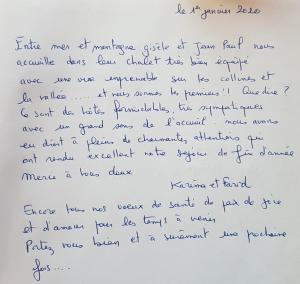 le 1er janvier 2020
Entre mer et montagne gisèle et Jean Paul nous
accueille dans leur chalet très bien équipé
avec une vue imprenable sur les collines et
la vallée ..... et nous sommes les premiers ! Que dire ?
Ce sont de hôtes formidables, très sympatiques
avec un grand sens de l'accueil. nous avons
eu droit à pleins de charmantes attentions qui
ont rendu excellent notre séjour de fin d'année
Merci à vous deux
Karina et Farid
Encore tous nos voeux de santé de paix de joie
et d'amour pour les temps à venir
Portez vous bien et à sûrement une prochaine
fois....